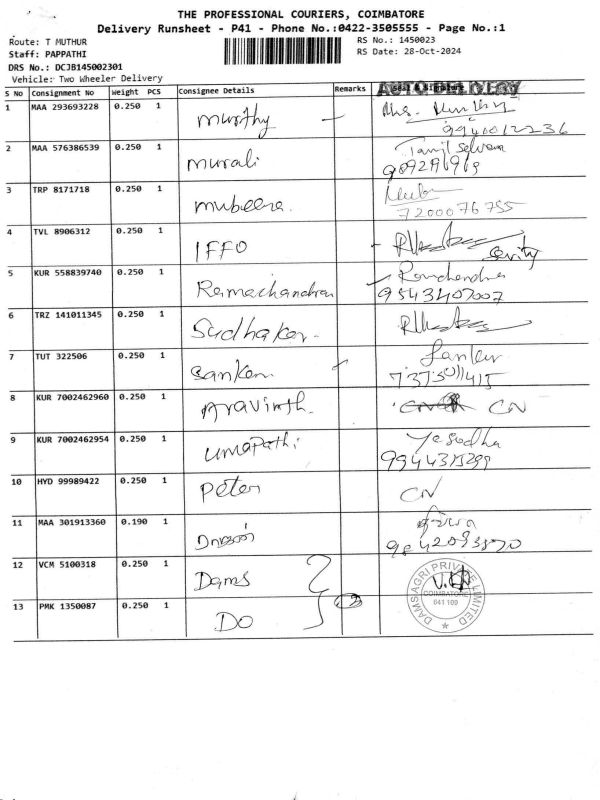 THE PROFESSIONAL COURIERS, COIMBATORE
Delivery Runsheet - P41 - Phone No.:0422-3505555 - Page No.:1
Route: T MUTHUR
RS No.: 1450023
Staff: PAPPATHI
RS Date: 28-Oct-2024
DRS No.: DCJB145002301
Vehicle: Two Wheeler Delivery
S No Consignment No Weight PCS Consignee Details Remarks Seal & Signature
AUTO DELIVERY
1 MAA 293693228 0.250 1 Murthy
2 MAA 576386539 0.250 1 Murali Tamil Selvan
3 TRP 8171718 0.250 1 Mubeera.
7200076755
4 TVL 8906312 0.250 1 IFFO
5 KUR 558839740 0.250 1 Ramachandran Ramchandra
9543407007
6 TRZ 141011345 0.250 1 Sudhaker.
7 TUT 322506 0.250 1 Sanker.
8 KUR 7002462960 0.250 1 Aravinth. CN
9 KUR 7002462954 0.250 1 Umapathi Yesodha
10 HYD 99989422 0.250 1 Peter CN
11 MAA 301913360 0.190 1
12 VCM 5100318 0.250 1 Dams
13 PMK 1350087 0.250 1 DO
DAMS AGRI PRIVATE LIMITED
COIMBATORE
641 109